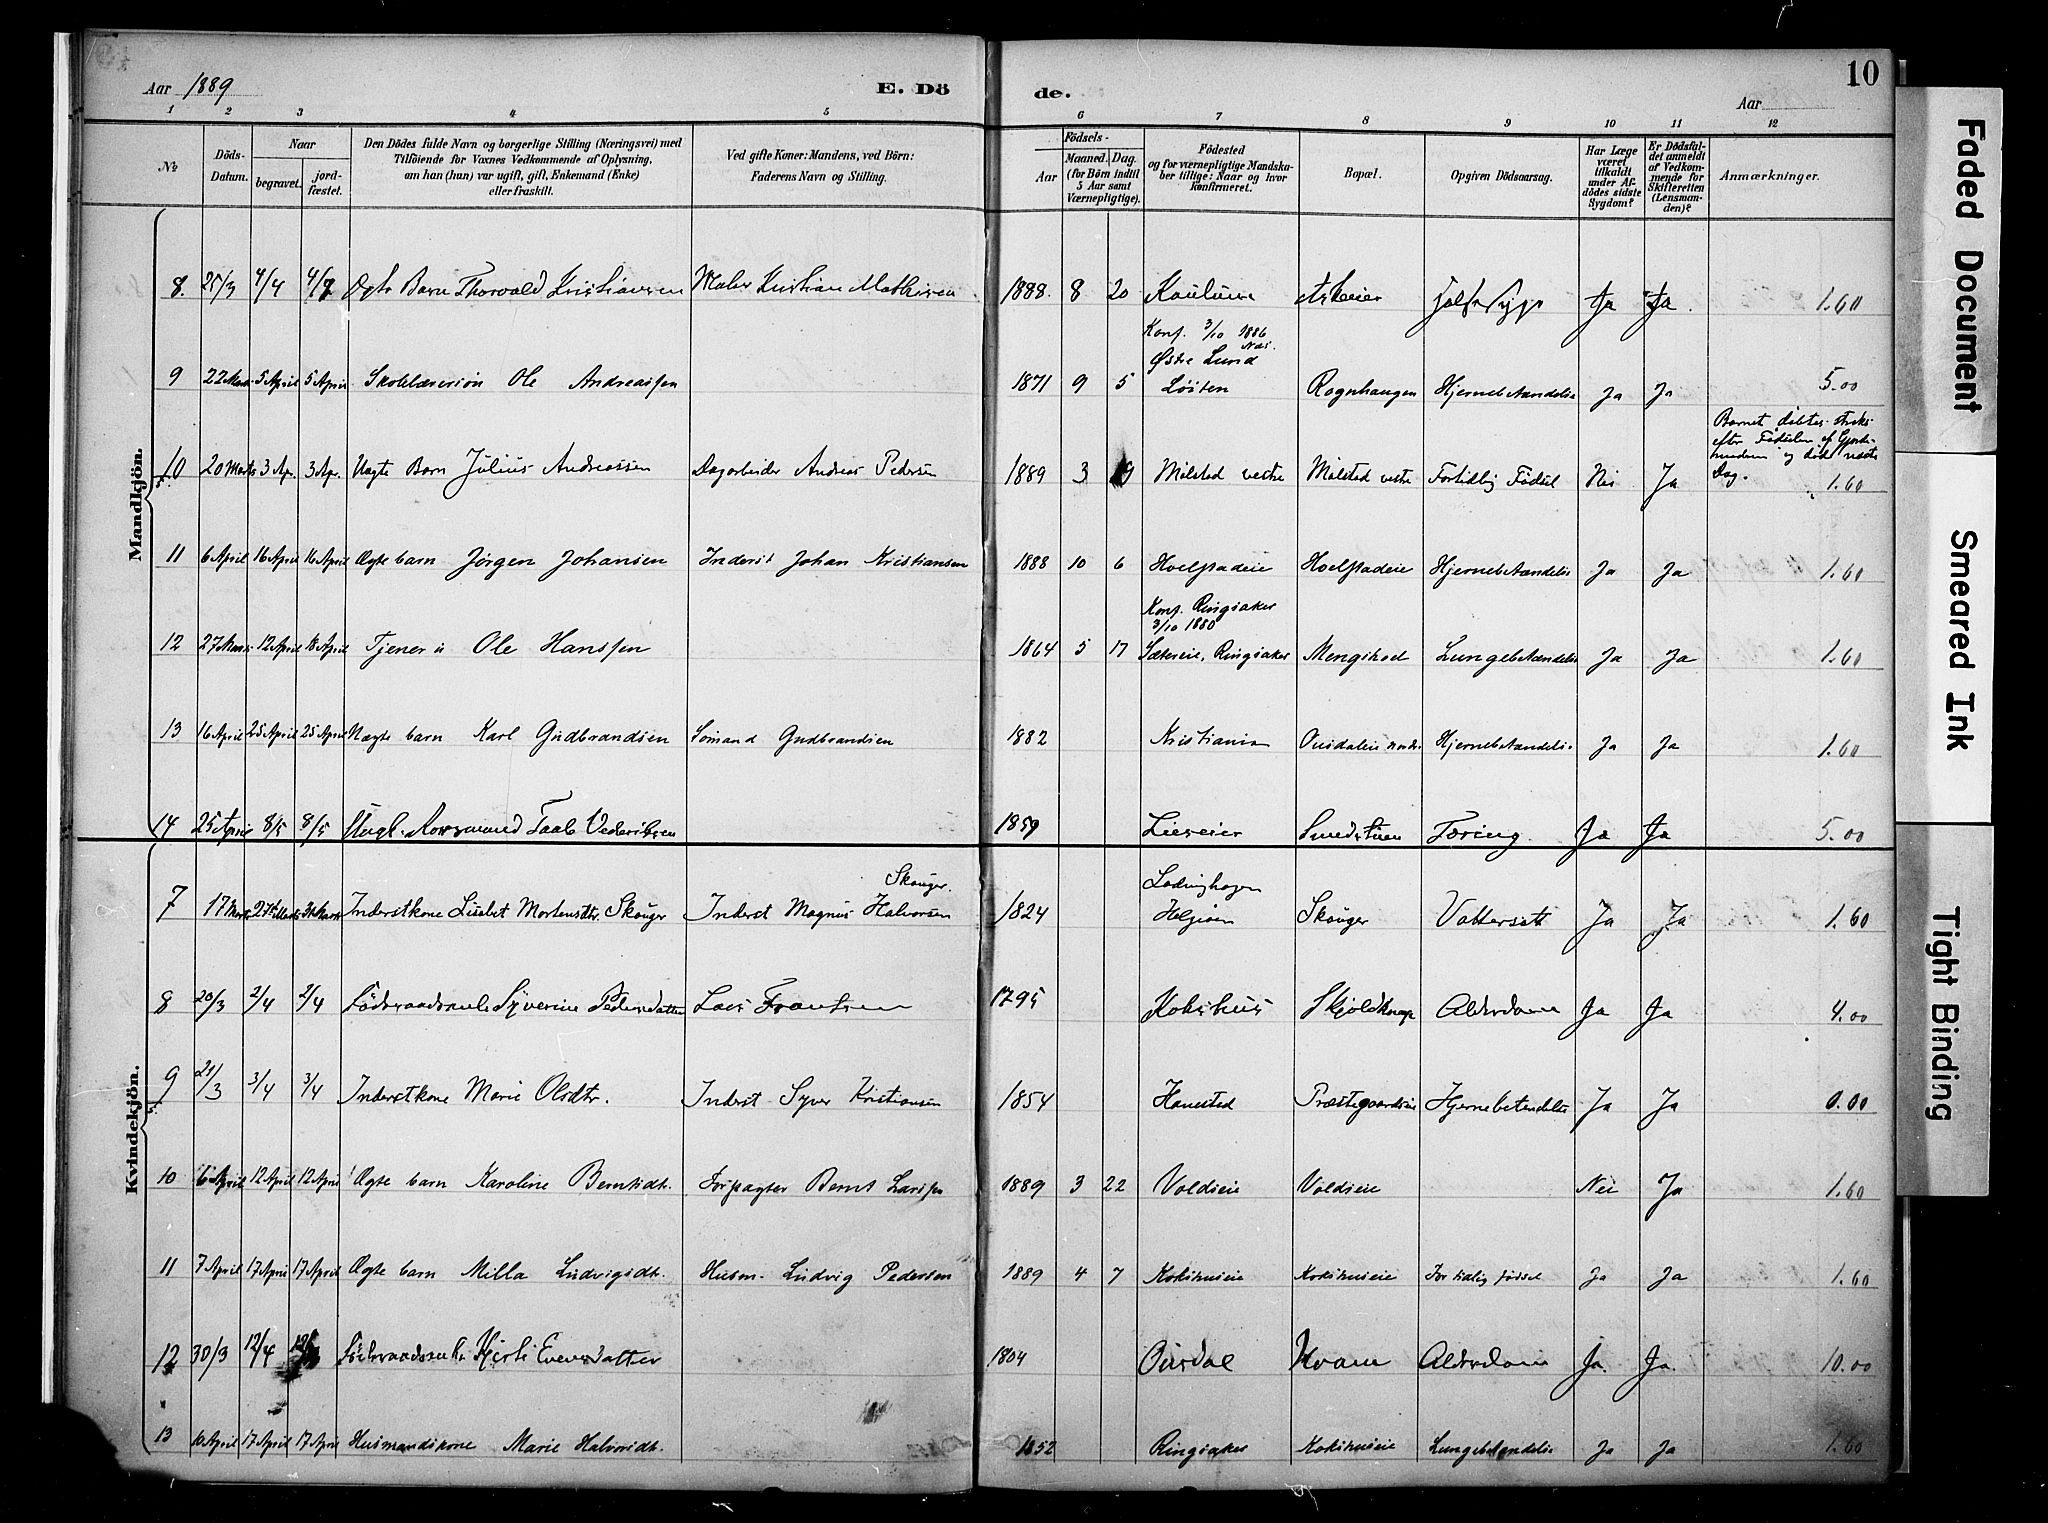 Aar 1889
E. Dö de.
Aar
10
1 2 3 4 5 6 7 8 9 10 11 12
No
Döds-Datum.
Naar
begravet.
jord-fæstet.
Den Dödes fulde Navn og borgerlige Stilling (Næringsvei) med
Tilföiende for Voxnes Vedkommende af Oplysning,
om han (hun) var ugift, gift, Enkemand (Enke)
eller fraskilt.
Ved gifte Koner: Mandens, ved Börn:
Faderens Navn og Stilling.
Födsels-
Aar
Maaned. Dag.
(for Börn indtil
5 Aar samt
Værnepligtige).
Födested
og for værnepligtige Mandska-
ber tillige: Naar og hvor
konfirmeret.
Bopæl.
Opgiven Dödsaarsag.
Har Læge
været
tilkaldt
under Af-
dödes sidste
Sygdom?
Er Dödsfal-
det anmeldt
af Vedkom-
mende for
Skifteretten
(Lensman-
den)?
Anmærkninger.
Mandkjön.
8. 25/3 4/4 Ægte Barn Thorvald Kristiansen Maler Kristian Mathisen 1888. 8 20 Ja Ja. 1.60
Konf. 3/10 1886
Næs.
Østre Lund
9 22 Marts 5 April 5 April Skolelærersøn Ole Andreassen 1871 9 5 Løiten Rognhaugen Hjernebetændelse Ja Ja 5.00
Barnet døbtes straks
efter Fødselen af Gjorde-
moderen og døde næste
10 20 Marts 3 Apr. 3 Apr. Uægte Barn Julius Andreassen Dagarbeider Andreas Pedersen 1889 3 19 Målstad vestre Målstad vestre Fortidlig Fødsel Nei Ja Dag. 1.60
11 6 April 16 April 16 April Ægte barn Jörgen Johansen Inderst Johan Kristiansen 1888 10 6 Hoelstadeie Hoelstadeie Hjernebetændelse Ja Ja 1.60
Konf. Ringsaker
3/10 1880
12 27 Marts 12 April April Tjener Ole Hanssen 1864 5 17 Sætereie, Ringsaker Mengshoel Lungebetændelse Ja Ja 1.60
13 16 April 25 April 25 April Uægte barn Karl Gudbrandsen Sømand Gudbrandsen 1882 Kristiania Hjernebetændelse Ja Ja 1.60
14 25 April 8/5 8/5 Ungk. 1859 Lieseier Smedstuen Tæring. Ja Ja 5.00
Kvindekjön.
Skouger. Ladinghagen
7 17 Marts 27 Marts Marts Inderstkone Lisabet Mortensdtr. Skouger Inderst Magnus Halvorsen 1824 Helgøen Skouger Vattersott Ja Ja 1.60
8 20/3 2/4 2/4 Föderaadsenke Syverine Pedersdatter Lars Frantsen 1795 Kokshus Alderdom Ja Ja 4.00
9 21/3 3/4 3/4 Inderstkone Marie Olsdtr. Inderst Syver Kristiansen 1854 Hanestad Præstegaardseie Hjernebetændelse Ja Ja 0.00
10 6 April 12 April 12 April Ægte barn Karoline Berntsdt. Forpagter Bernt Larssen 1889 3 22 Voldseie Voldseie Nei Ja 1.60
11 7 April 17 April 17 April Ægte barn Milla Ludvigsdt. Husm. Ludvig Pedersen 1889 4 7 Kokshuseie Kokshuseie For tidlig fødsel Ja Ja 1.60
12 30/3 12/4 Föderaadsenke Kjersti Evensdatter 1804 Ousdal Hvam Alderdom Ja. Ja. 10.00
13 April 17 April 17 April Husmandskone Marie Halvorsdt. 1852 Ringsaker Kokshuseie Lungebetændelse Ja Ja 1.60
Faded Document
Smeared Ink
Tight Binding